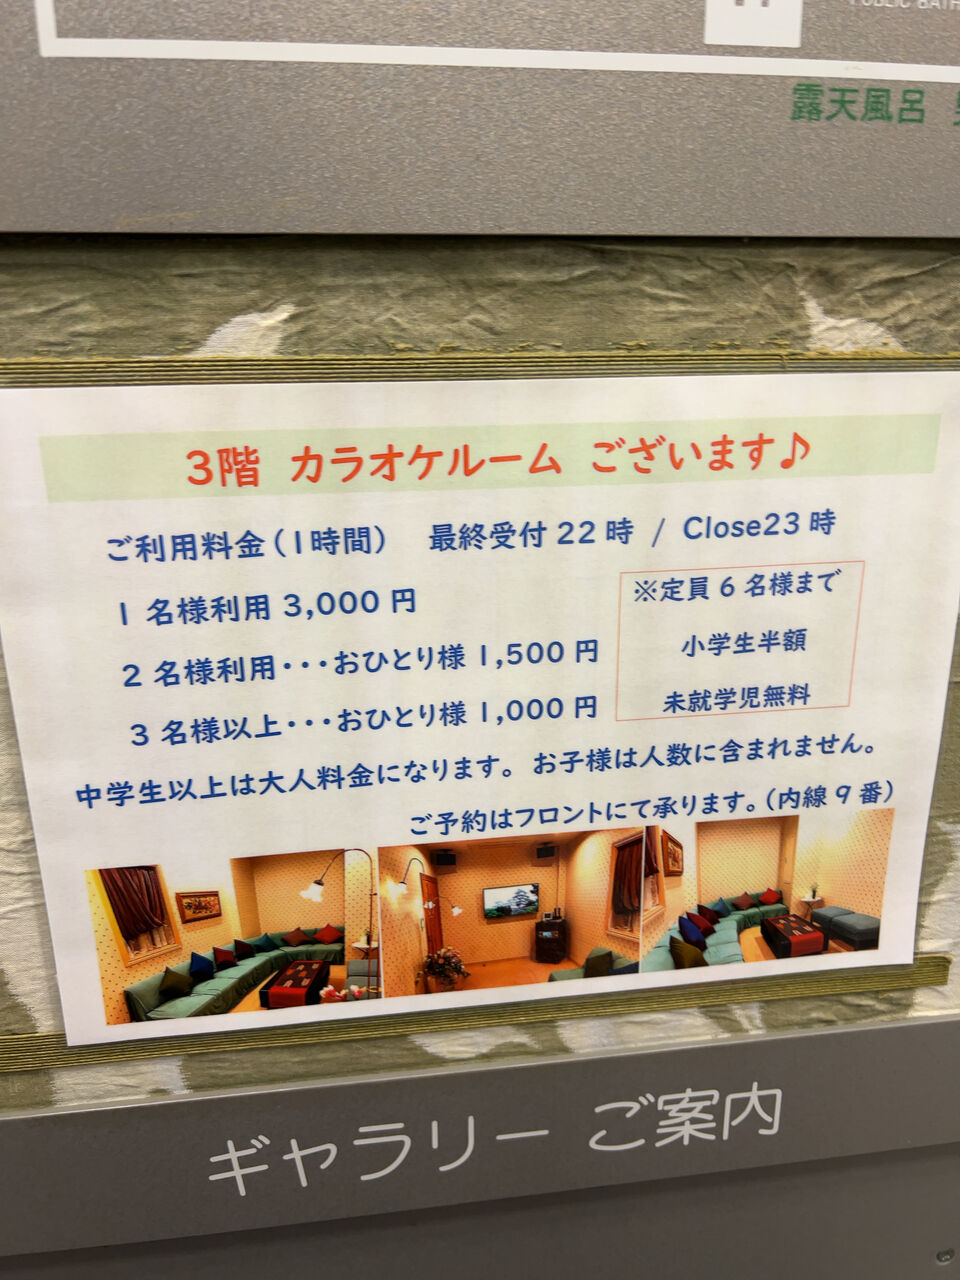 PUBLIC BATH
露天風呂
3階 カラオケルーム ございます♪
ご利用料金(1時間) 最終受付 22 時 / Close23 時
1 名様利用 3,000 円
2 名様利用・・・おひとり様 1,500 円
3 名様以上・・・おひとり様 1,000 円
※定員 6 名様まで
小学生半額
未就学児無料
中学生以上は大人料金になります。お子様は人数に含まれません。
ご予約はフロントにて承ります。(内線 9 番)
ギャラリー ご案内